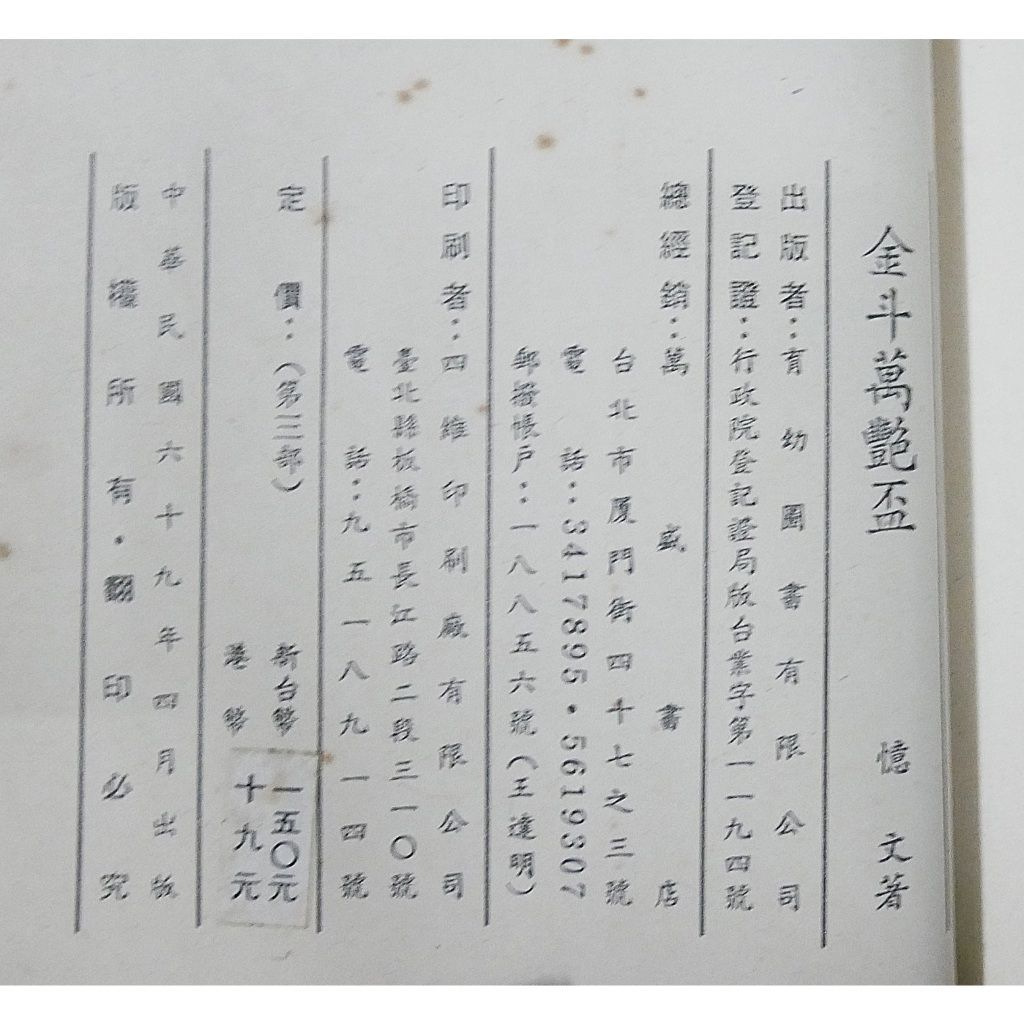 金斗萬艷盃　憶文著
出版者：育幼圖書有限公司
登記證：行政院登記證局版台業字第一一九四號
總經銷：萬盛書店
台北市厦門街四十七之三號
電話：3417895・5619307
郵撥帳戶：一八八五六號（王達明）
印刷者：四維印刷廠有限公司
臺北縣板橋市長江路二段三一〇號
電話：九五一八九一四號
定價：（第三部）
新台幣一五〇元
港幣十九元
中華民國六十九年四月出版
版權所有・翻印必究